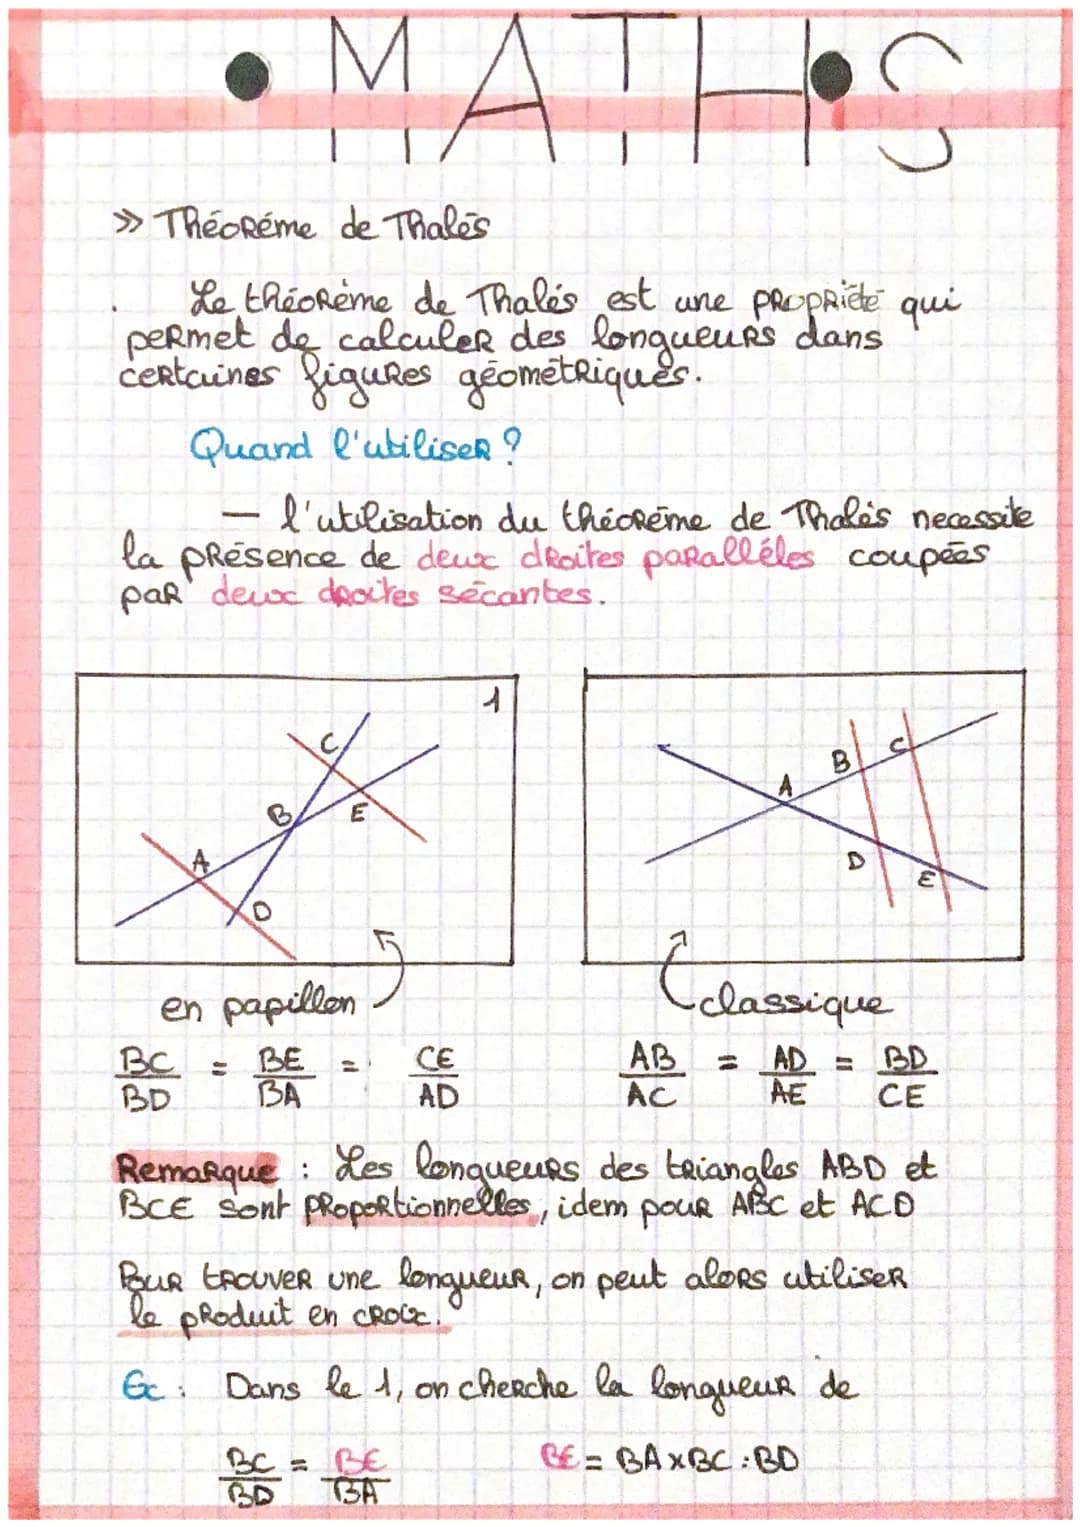 • MATHS
>> Théoréme de Thalēs
Le théorème de Thalés est une propriété qui
permet de calculer des longueurs dans
certaines figures géométriques.
Quand l'utiliser ?
— l'utilisation du théorēme de Thalès necessite
la présence de deux droites paralléles coupées
par deux droites sécantes.
1
C
B
E
A
D
B
C
A
D
E
en papillon
classique
BC/BD = BE/BA = CE/AD
AB/AC = AD/AE = BD/CE
Remarque : Les longueurs des triangles ABD et
BCE sont proportionnelles, idem pour ABC et ACD
Pour trouver une longueur, on peut alors utiliser
le produit en croix.
Ex : Dans le 1, on cherche la longueur de
BC/BD = BE/BA BE = BA×BC : BD